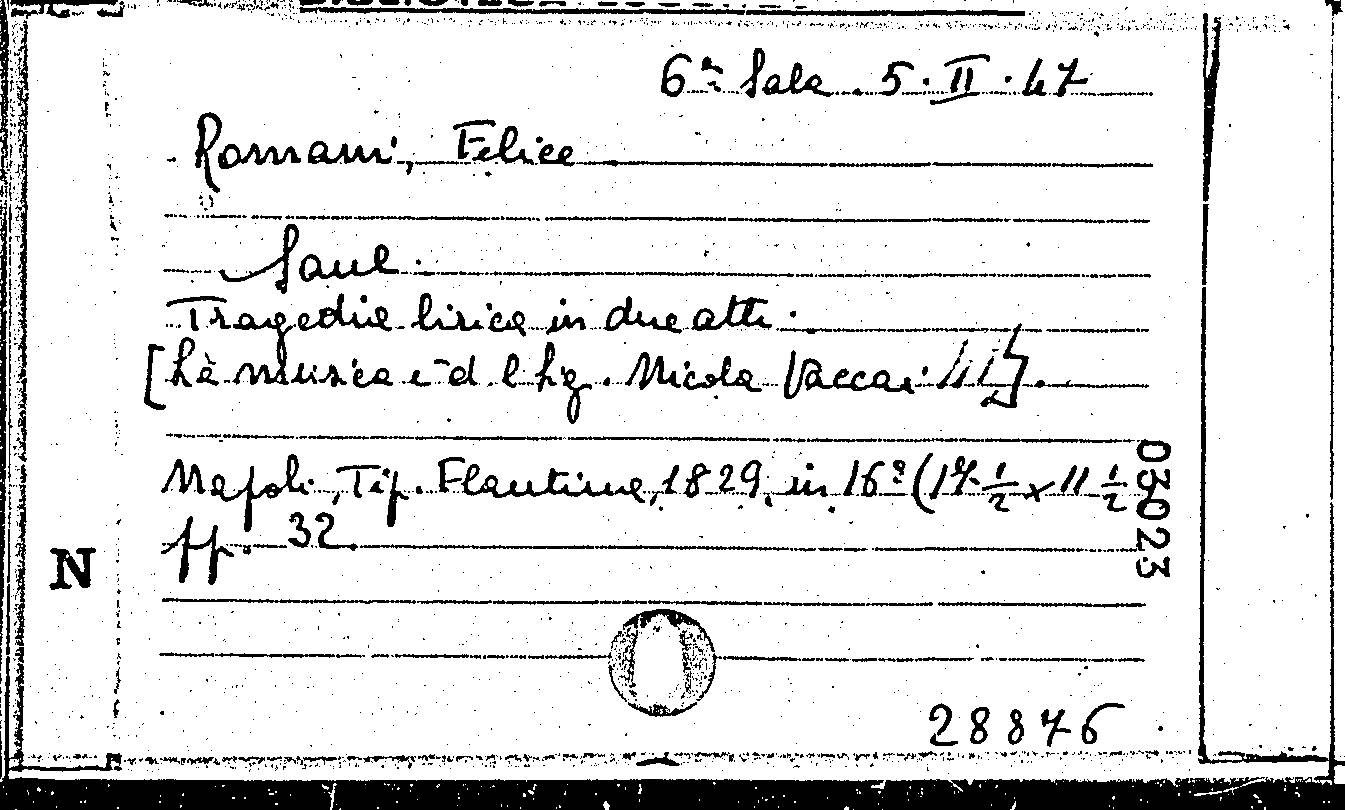 6ª Sala. 5. II. 47
Romani, Felice
Saul.
Tragedia lirica in due atti.
[La musica è d l Sig. Nicola Vaccai ///].
Napoli, Tip. Flautina, 1829, in 16º (17 1/2 x 11 1/2
pp. 32.
03023
N
28876